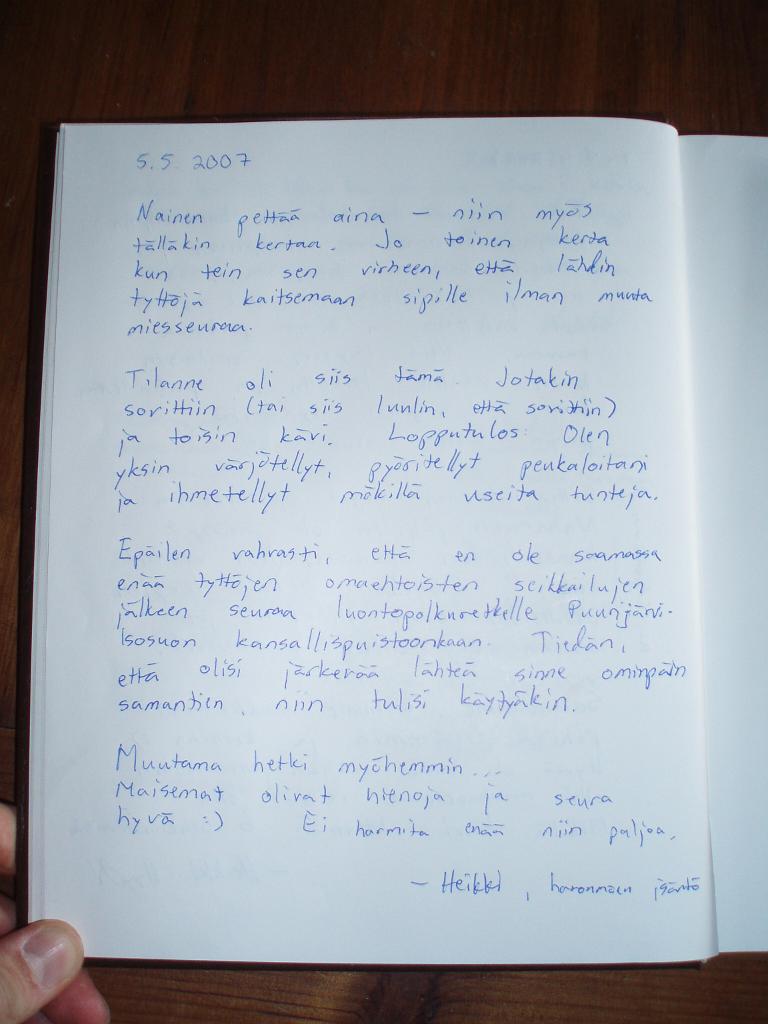 5.5. 2007
Nainen pettää aina – niin myös
tälläkin kertaa. Jo toinen kerta
kun tein sen virheen, että lähdin
tyttöjä kaitsemaan sipille ilman muuta
miesseuraa.
Tilanne oli siis tämä. Jotakin
sovittiin (tai siis luulin, että sovittiin)
ja toisin kävi. Lopputulos: Olen
yksin värjötellyt, pyöritellyt peukaloitani
ja ihmetellyt mökillä useita tunteja.
Epäilen vahvasti, että en ole saamassa
enää tyttöjen omaehtoisten seikkailujen
jälkeen seuraa luontopolkuretkelle Puurijärvi-
Isosuon kansallispuistoonkaan. Tiedän,
että olisi järkevää lähteä sinne ominpäin
samantien, niin tulisi käytyäkin.
Muutama hetki myöhemmin...
Maisemat olivat hienoja ja seura
hyvä :) Ei harmita enää niin paljoa.
– Heikki, isäntä